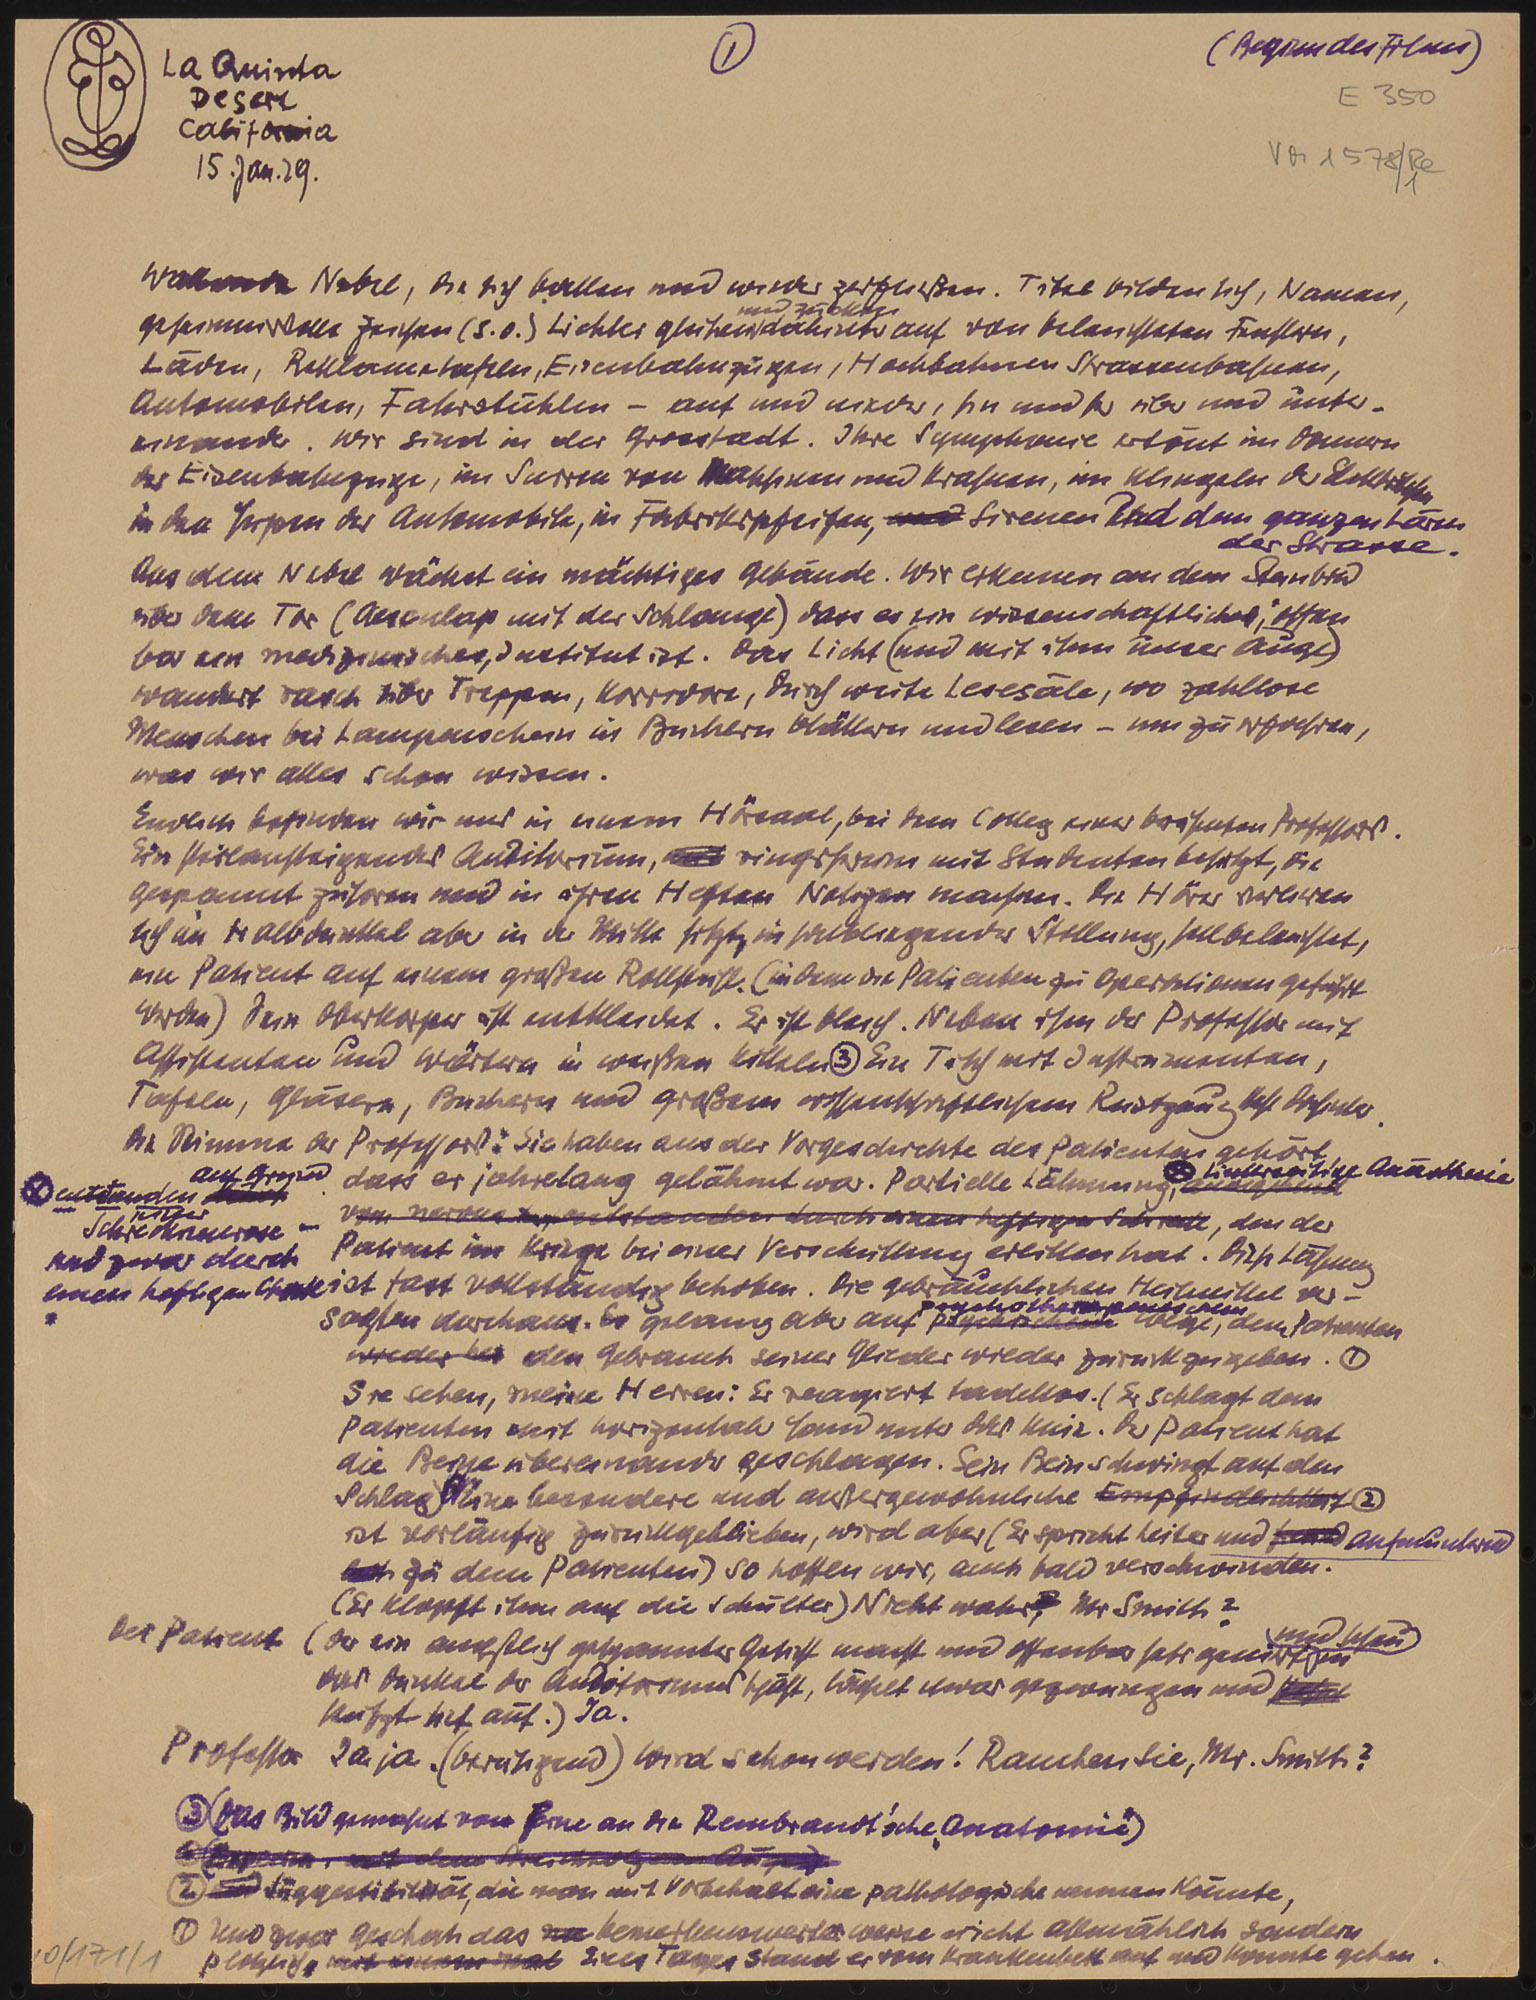 La Quinta
Desert
California
15. Jan. 29.
1
(Beginn des Films)
E 350
Vor 1578/Re
1
Wallende Nebel, die sich ballen und wieder zerfließen. Titel bilden sich, Namen,
geheimnisvolle Zeichen (s.o.) Lichter glühen dahinter auf von beleuchteten Fenstern,
und zucken
Läden, Reklametafeln, Eisenbahnzügen, Hochbahnen Strassenbahnen,
Automobilen, Fahrstühlen – auf und nieder, hin und her über und unter-
einander. Wir sind in der Grosstadt. Ihre Symphonie ertönt im Donnern
der Eisenbahnzüge, im Surren von Maschinen und Krahnen, im Klingeln der
in den Huppen der Automobile, in Fabrikspfeifen, und Sirenen und dem ganzen Lärm
der Strasse.
Aus dem Nebel wächst ein mächtiges Gebäude. Wir erkennen an dem Steinbild
über dem Tor (Aesculap mit der Schlange) dass es ein wissenschaftliches, offen
bar ein medizinisches, Institut ist. Das Licht (und mit ihm unser Auge)
wandert rasch über Treppen, Korridore, durch weite Lesesäle, wo zahllose
Menschen bei Lampenschein in Büchern blättern und lesen – um zu erfahren,
was wir alles schon wissen.
Endlich befinden wir uns in einem Hörsaal, bei dem Colleg eines berühmten Professors.
Ein steilansteigendes Auditorium, ringsherum mit Studenten besetzt, die
gespannt zuhören und in ihren Heften Notizen machen. Die Hörer verlieren
sich im Halbdunkel aber in der Mitte sitzt, in halbliegender Stellung, hellbeleuchtet,
ein Patient auf einem großen Rollstuhl. (in dem die Patienten zu Operationen geführt
werden) Sein Oberkörper ist entkleidet. Er ist bleich. Neben ihm der Professor mit
Assistenten und Wärtern in weißen Kitteln ③ Ein Tisch mit Instrumenten,
Tafeln, Gläsern, Büchern und großem wissenschaftlichem Rüstzeug steht dahinter.
Die Stimme des Professors: Sie haben aus der Vorgeschichte des Patienten gehört
dass er jahrelang gelähmt war. Partielle Lähmung, linksseitige Anästhesie
entstanden auf Grund
einer
Schreckneurose –
und zwar durch
einen heftigen Choc
von entstanden durch einen heftigen Schreck, den der
Patient im Kriege bei einer Verschüttung erlitten hat. Diese Lähmung
ist fast vollständig behoben. Die gebräuchlichen Heilmittel ver-
sagten durchaus. Es gelang aber auf psychischem Wege, dem Patienten
psychotherapeutischem
wieder den Gebrauch seiner Glieder wieder zurückzugeben. ①
Sie sehen, meine Herren: Er reagiert tadellos. (Er schlägt dem
Patienten mit horizontaler Hand unter das Knie. Der Patient hat
die Beine übereinander geschlagen. Sein Bein schwingt auf den
Schlag) Eine besondere und außergewöhnliche Empfindlichkeit ②
ist vorläufig zurückgeblieben, wird aber (Er spricht heiter und aufmunternd
zu dem Patienten) so hoffen wir, auch bald verschwinden.
(Er klopft ihm auf die Schulter) Nicht wahr, Mr Smith?
Der Patient (der ein ängstlich gespanntes Gesicht macht und offenbar sehr geniert in
und scheu
das Dunkel des Auditoriums späht, lächelt etwas gezwungen und
seufzt tief auf.) Ja.
Professor Ja ja. (beruhigend) Wird schon werden! Rauchen Sie, Mr. Smith?
③ (Das Bild gemahnt von ferne an die Rembrandt'sche „Anatomie“)
② Suggestibilität, die man mit Vorbehalt eine pathologische nennen könnte,
① Und zwar geschah das bemerkenswerter weise nicht allmählich sondern
plötzlich, mit einem mal Eines Tages stand er vom Krankenbett auf und konnte gehen.
10/171/1